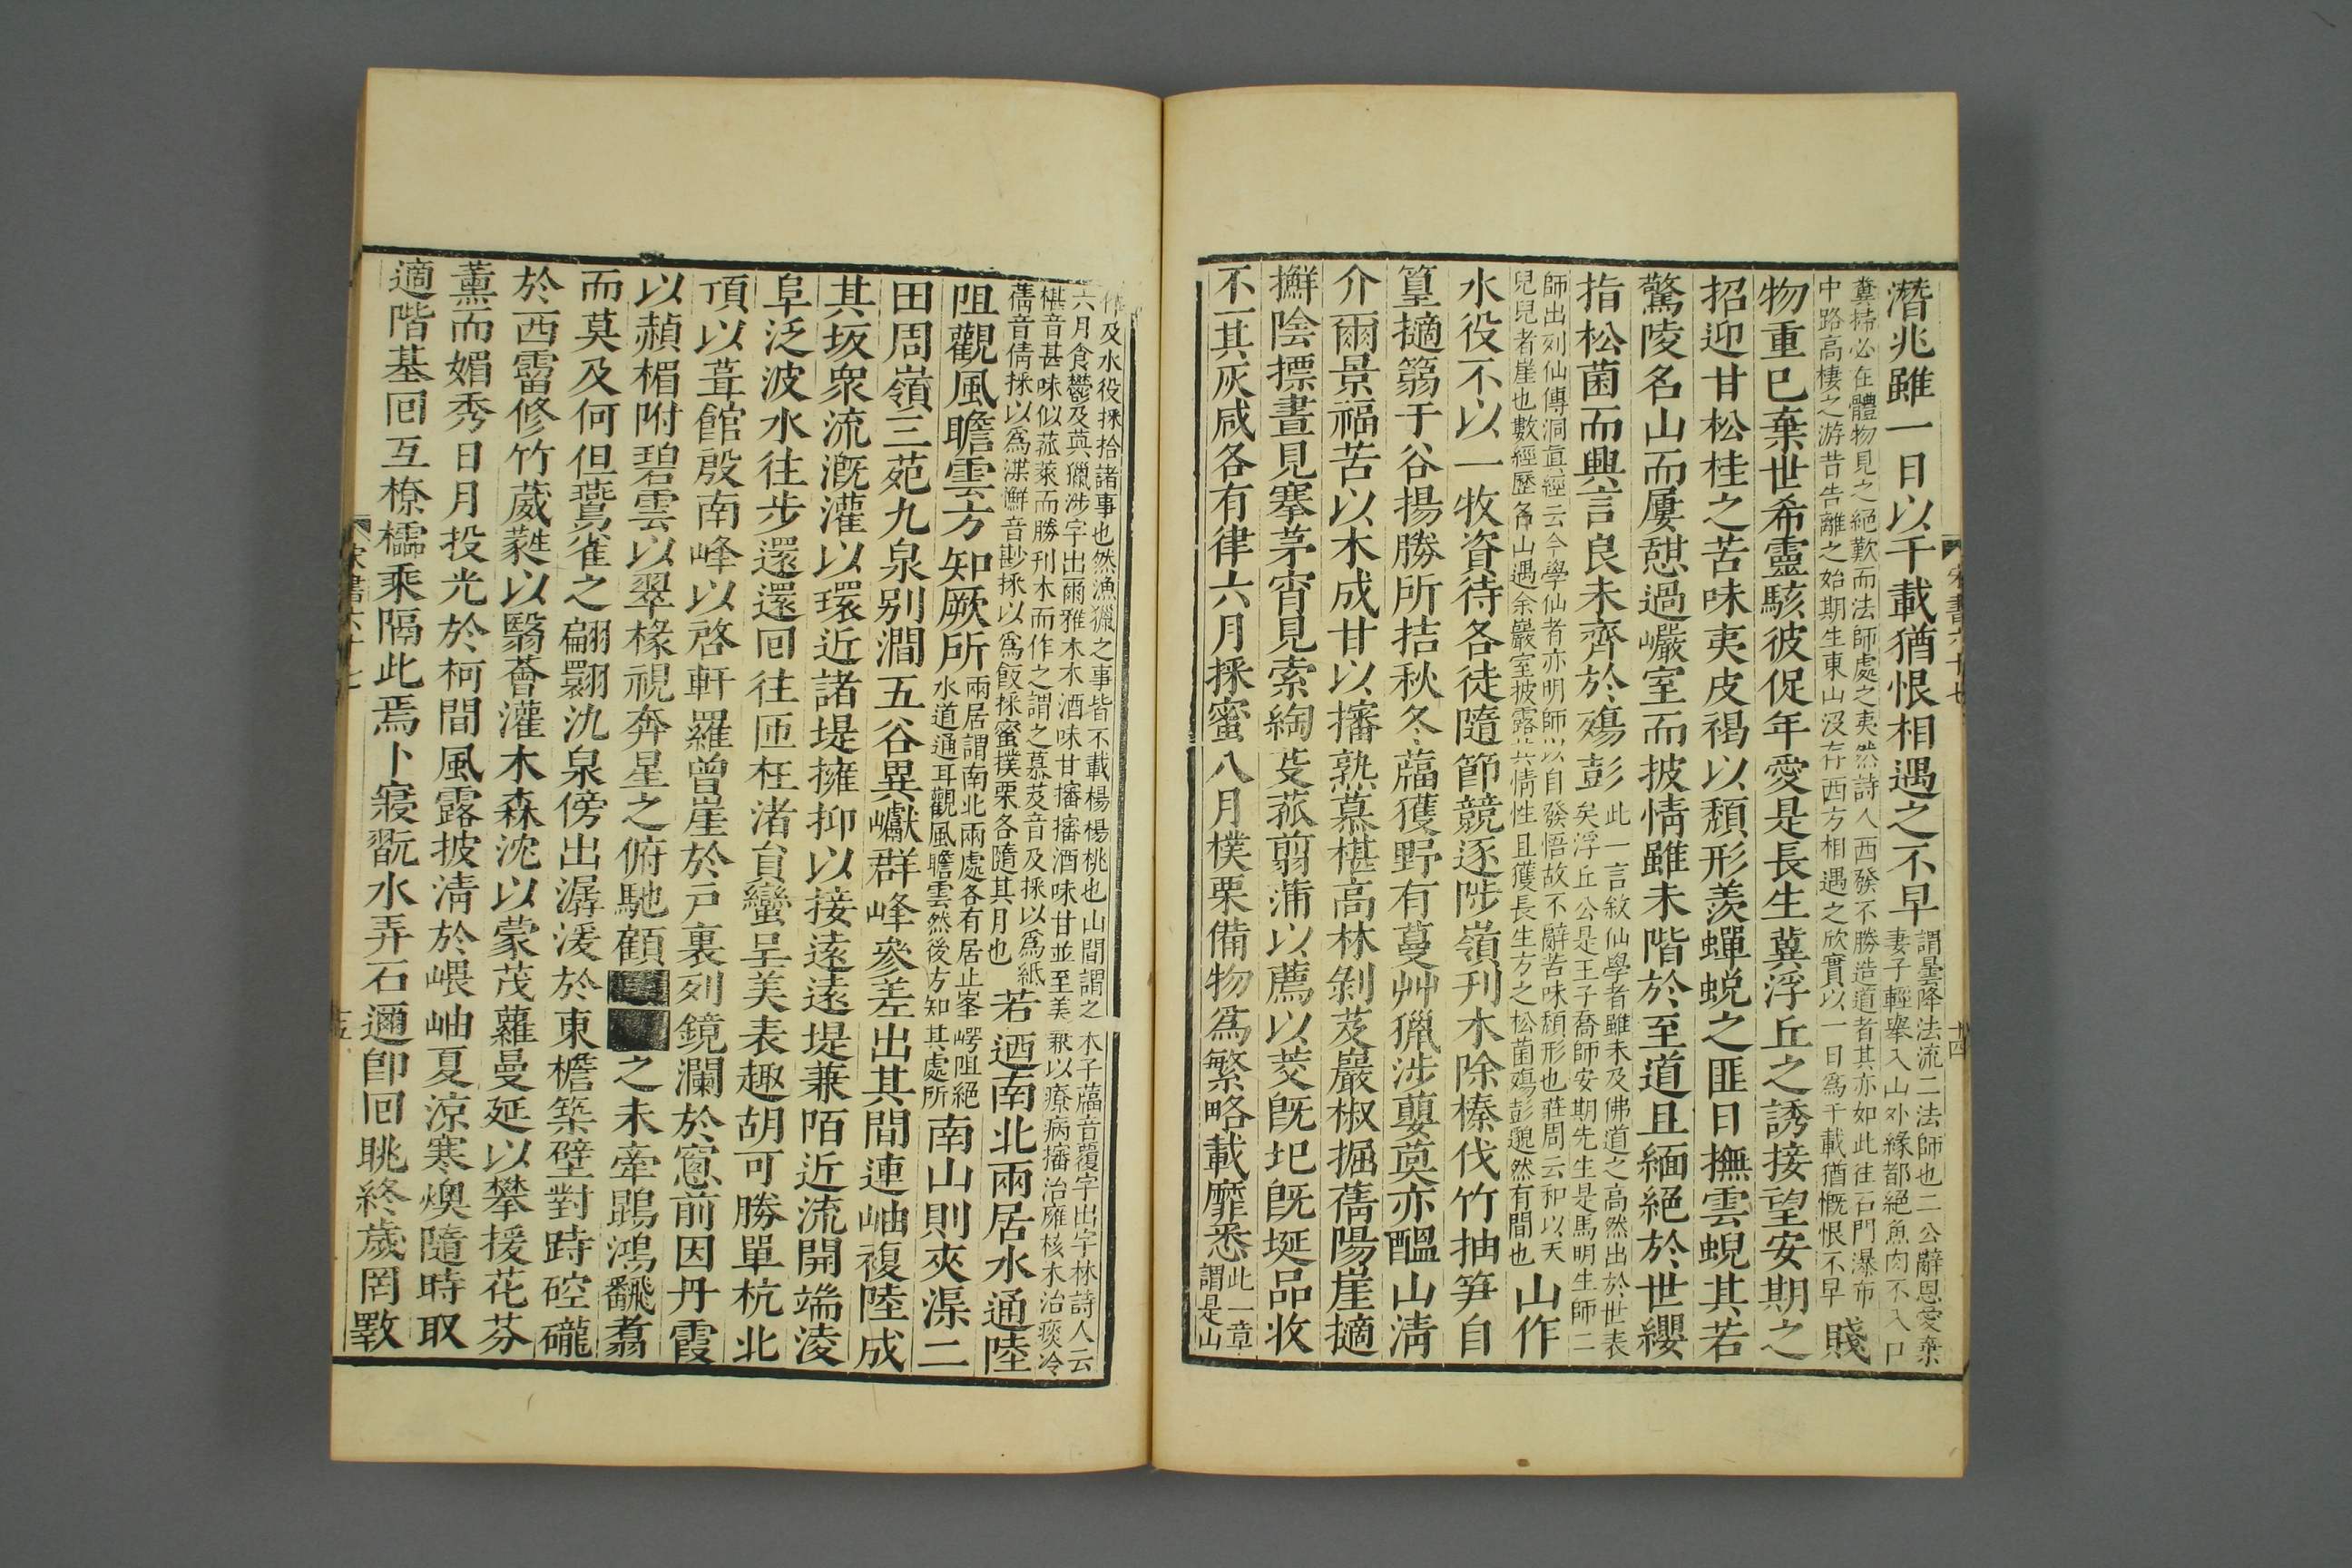 潛兆雖一日以千載猶恨相遇之不早謂曇降法流二法師也二公辭恩愛棄妻子輕舉入山外緣都絕魚肉不入口
糞掃必在體物見之絕歎而法師處之夷然詩人西發不勝造道者其亦如此往石門瀑布中路高棲之游昔告離之始期生東山沒存西方相遇之欣實以一日為千載猶慨恨不早賤
物重已棄世希靈駭彼促年愛是長生冀浮丘之誘接望安期之
招迎甘松桂之苦味夷皮褐以頹形羨蟬蛻之匪日撫雲蜺其若
驚陵名山而屢憩過巖室而披情雖未階於至道且緬絕於世纓
指松菌而興言良未齊於殤彭此一言敘仙學者雖未及佛道之高然出於世表矣浮丘公是王子喬師安期先生是馬明生師二
師出列仙傳洞真經云今學仙者亦明師以自發悟故不辭苦味頹形也莊周云和以天兒兒者崖也數經歷各山遇余巖室披露其情性且獲長生方之松菌殤彭邈然有間也山作
水役不以一牧資待各徒隨節競逐陟嶺刊木除榛伐竹抽笋自
篁擿篛于谷揚勝所拮秋冬蕌獲野有蔓艸獵涉蘡薁亦醞山清
介爾景福苦以木成甘以㯆熟慕椹高林剝芨巖椒掘蒨陽崖擿
擀陰摽晝見搴茅宵見索綯芟菰翦蒲以薦以茭旣坭旣埏品收
不一其灰咸各有律六月採蜜八月樸栗備物為繁略載靡悉此一章謂是山
作及水役採拾諸事也然漁獵之事皆不載楊楊桃也山間謂之木子蕌音覆字出字林詩人云六月食鬱及薁獵涉字出爾雅木木酒味甘㯆㯆酒味甘並至美兼以療病㯆治癰核木治痰冷
椹音甚味似菰菜而勝刊木而作之謂之慕芨音及採以為紙蒨音倩採以為渫擀音尠採以為飯採蜜撲栗各隨其月也若迺南北兩居水通陸
阻觀風瞻雲方知厥所兩居謂南北兩處各有居止峯崿阻絕水道通耳觀風瞻雲然後方知其處所南山則夾渠二
田周嶺三苑九泉別澗五谷異巘群峰參差出其間連岫複陸成
其坂衆流漑灌以環近諸堤擁抑以接遠遠堤兼陌近流開端淩
阜泛波水往步還還回往匝枉渚員巒呈美表趣胡可勝單杭北
頂以葺館殷南峰以啓軒羅曾崖於戶裏列鏡瀾於窻前因丹霞
以赬楣附碧雲以翠椽視奔星之俯馳顧之未牽鵾鴻翻翥
而莫及何但鷰雀之翩翾氿泉傍出潺湲於東檐桀壁對跱硿礲
於西霤修竹葳蕤以翳薈灌木森沈以蒙茂蘿曼延以攀援花芬
薰而媚秀日月投光於柯間風露披清於嵔岫夏涼寒燠隨時取
適階基回互橑櫺乘隔此焉卜寢翫水弄石邇卽回眺終歲罔斁
宋書六十七